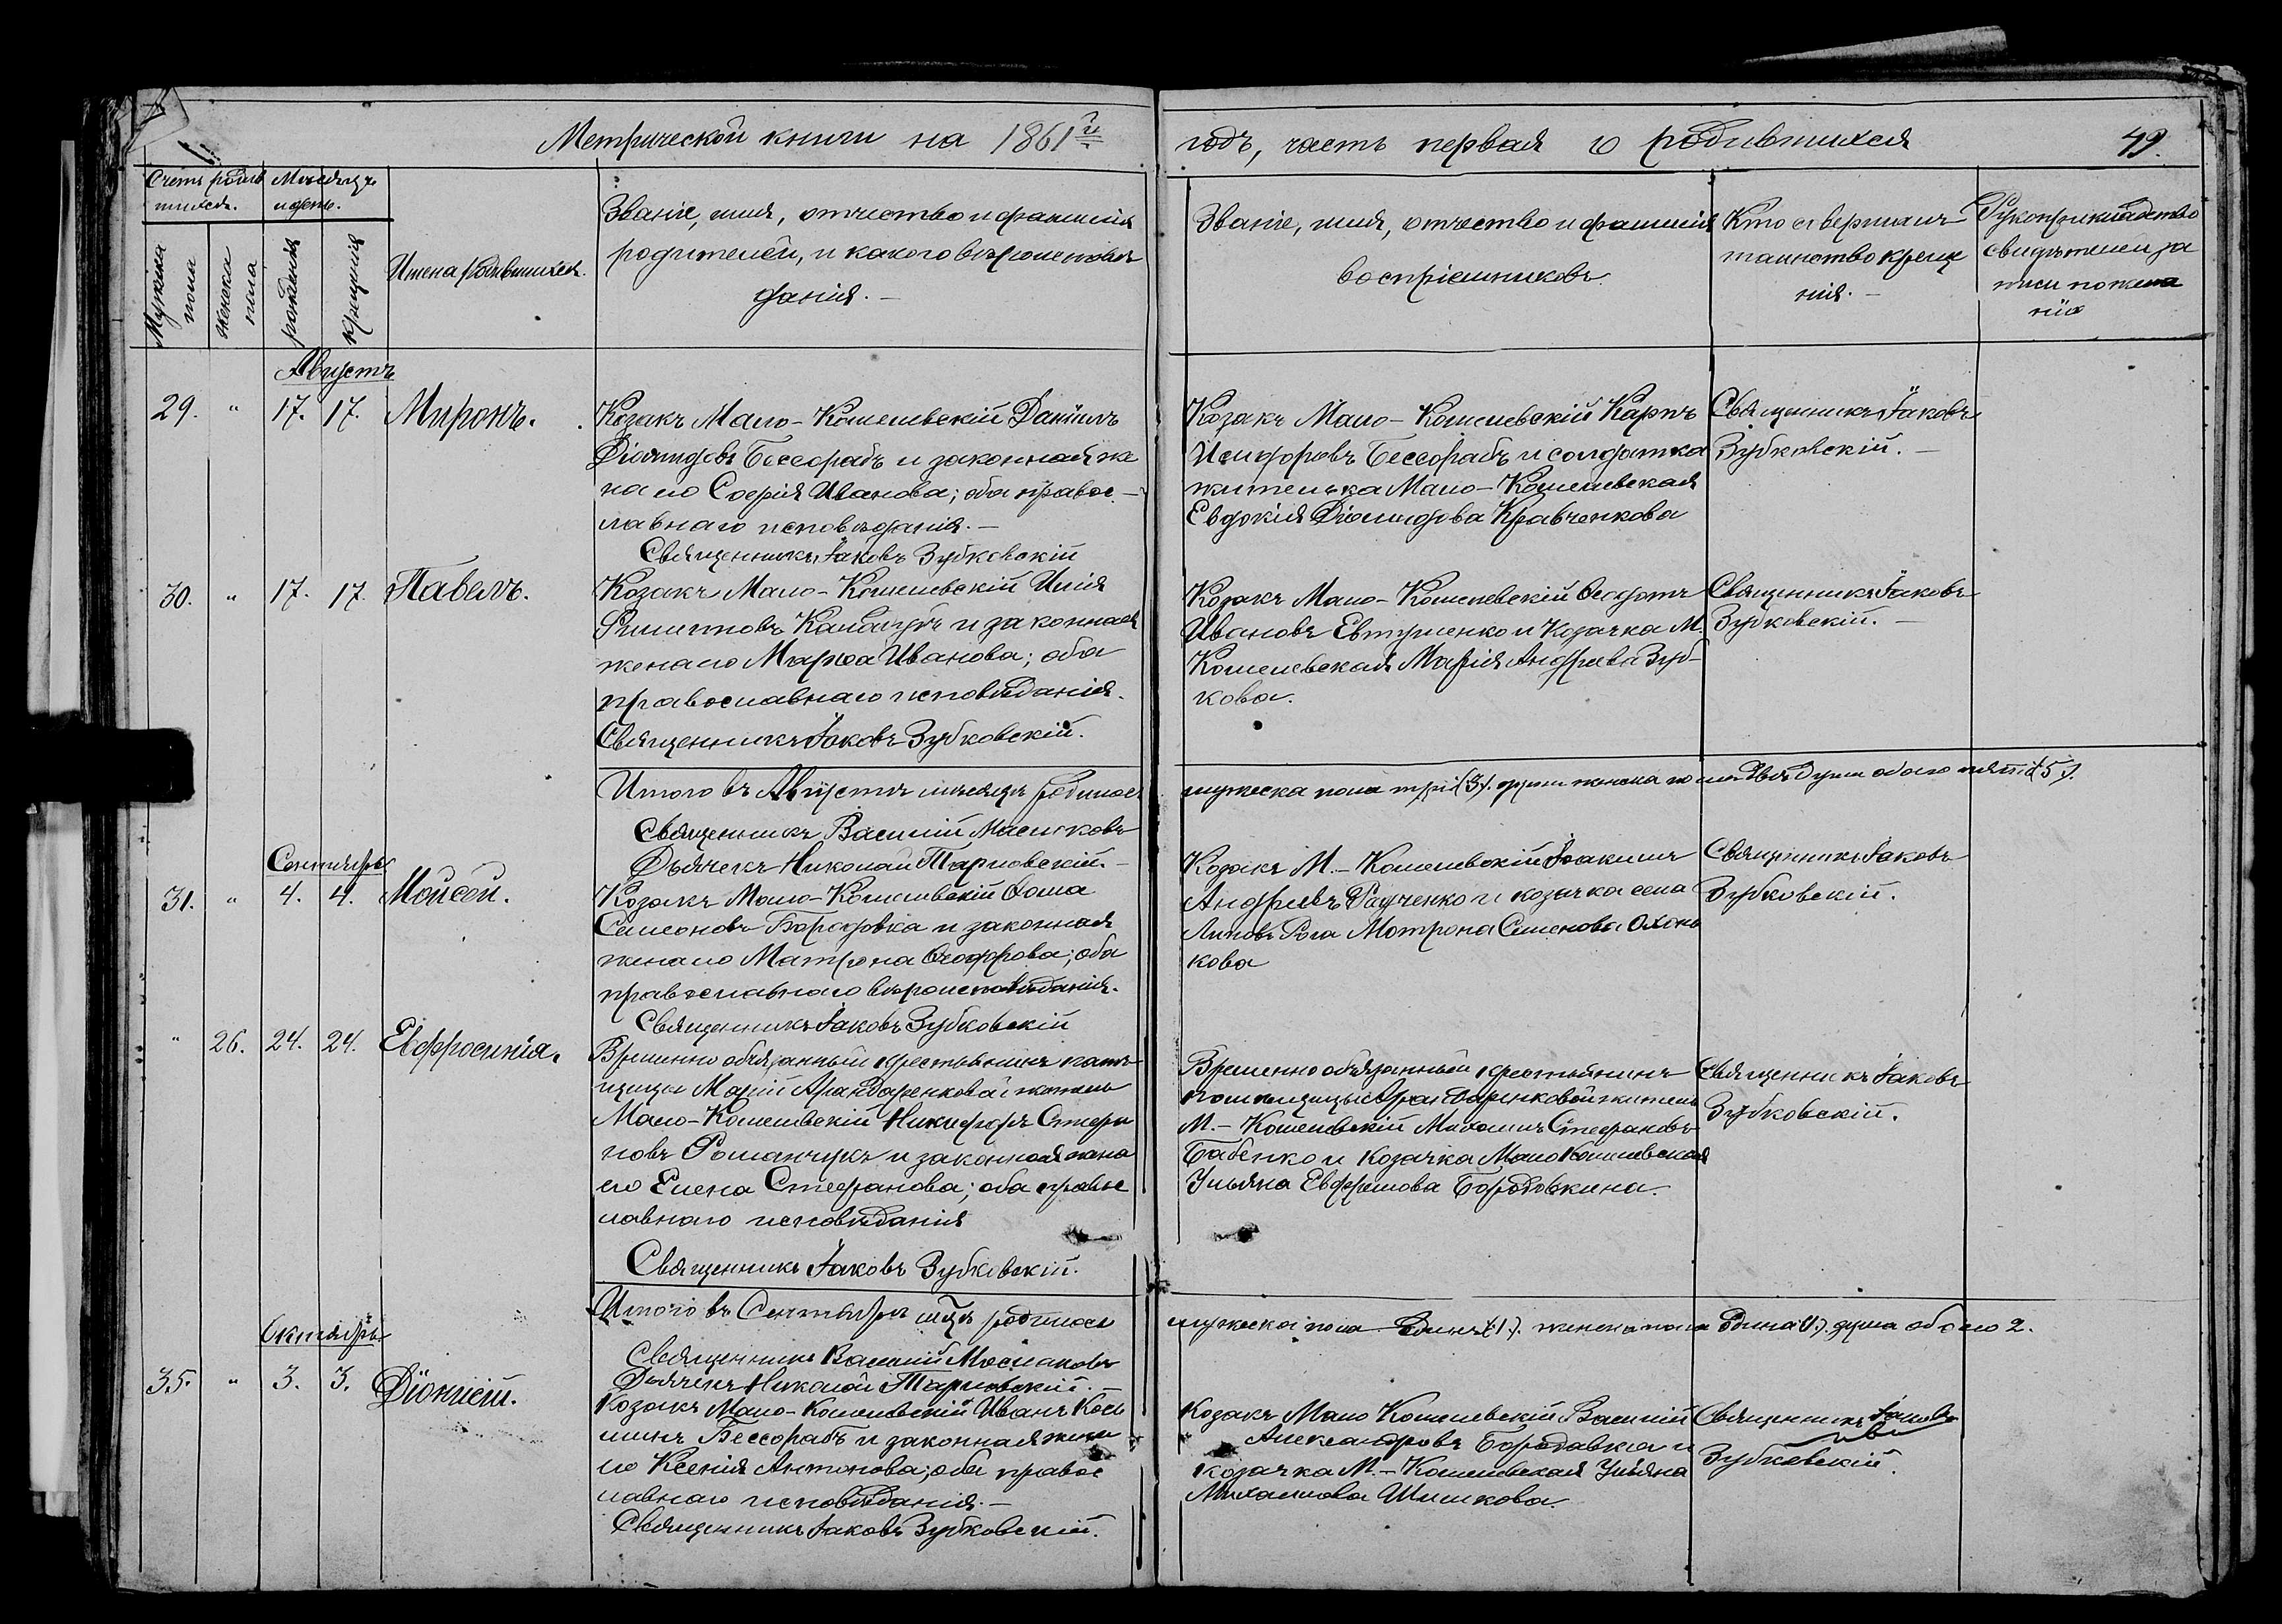 Метрической книги на 1861й годъ, часть первая о родившихся 49.
Счетъ родив
шихся.
Мѣсяцъ
и день.
Мужеска
пола
женска
пола
рожденія
крещенія
Имена родившихся.
Званіе, имя, отчество и фамилія
родителей, и какого вѣроисповѣ
данія. —
Званіе, имя, отчество и фамилія
воспріемниковъ.
Кто совершалъ
таинство креще
нія. —
Рукоприкладство
свидѣтелей за
писи по жела
нію
Августъ
29. " 17. 17. Миронъ.
Козакъ Мало-Кошелевскій Даніилъ
Діомидовъ Бессорабъ и законная же
на его Софія Иванова; оба правос-
лавнаго исповѣданія. —
Священникъ Іаковъ Зубковскій
Козакъ Мало-Кошелевскій Карпъ
Исидоровъ Бессорабъ и солдатка
жителька Мало-Кошелевская
Евдокія Діомидова Кравченкова
Священникъ Іаковъ
Зубковскій. —
30. " 17. 17. Павелъ.
Козакъ Мало-Кошелевскій Илія
Филиповъ и законная
жена его Марѳа Иванова; оба
православнаго исповѣданія.
Священникъ Іаковъ Зубковскій.
Козакъ Мало-Кошелевскій Ѳеодотъ
Ивановъ Евтушенко и Козачка М.
Кошелевская Марія Андреева Зуб-
кова.
Священникъ Іаковъ
Зубковскій. —
Итого въ Августѣ мѣсяцѣ родилось мужеска пола три (3). души женска пола двѣ души обоего пять (5).
Священникъ Василій Маслаковъ
Дьячекъ Николай Тарновскій. —
Сентябрь
31. " 4. 4. Мойсей.
Козакъ Мало-Кошелевскій Ѳома
Симеоновъ Бородовка и законная
жена его Матрона Ѳеодорова; оба
православнаго вѣроисповѣданія.
Священникъ Іаковъ Зубковскій
Козакъ М.-Кошелевскій Іоакимъ
Андреевъ Радченко и козачка села
Липовъ Рога Мотрона Семенова
кова
Священникъ Іаковъ
Зубковскій.
" 26. 24. 24. Евфросинія.
Временно обязанный крестьянинъ помѣ-
щицы Маріи Арандаренковой житель
Мало-Кошелевскій Никифоръ Стефа
новъ Романчукъ и законная жена
его Елена Стефанова; оба правос
лавнаго исповѣданія
Священникъ Іаковъ Зубковскій.
Временно обязанный крестьянинъ
помѣщицы Арандаренковой житель
М.-Кошелевскій Михаилъ Стефановъ
Бабенко и Козачка Мало Кошелевская
Ульяна Евфремова Бородовкина.
Священникъ Іаковъ
Зубковскій.
Итого въ Сентябрѣ мцѣ родилось мужеска пола Единъ (1). женска пола Едина (1). душа обоего 2.
Священникъ Василій Маслаковъ
Дьячекъ Николай Тарновскій. —
Октябрь
35. " 3. 3. Діонисій.
Козакъ Мало-Кошелевскій Иванъ Кось
минъ Бессорабъ и законная жена
его Ксенія Антонова; оба правос
лавнаго исповѣданія. —
Священникъ Іаковъ Зубковскій.
Козакъ Мало Кошелевскій Василій
Александровъ Бородавка и
козачка М.-Кошелевская Ульяна
Михаилова Шишкова.
Священникъ Іаковъ
Зубковскій.